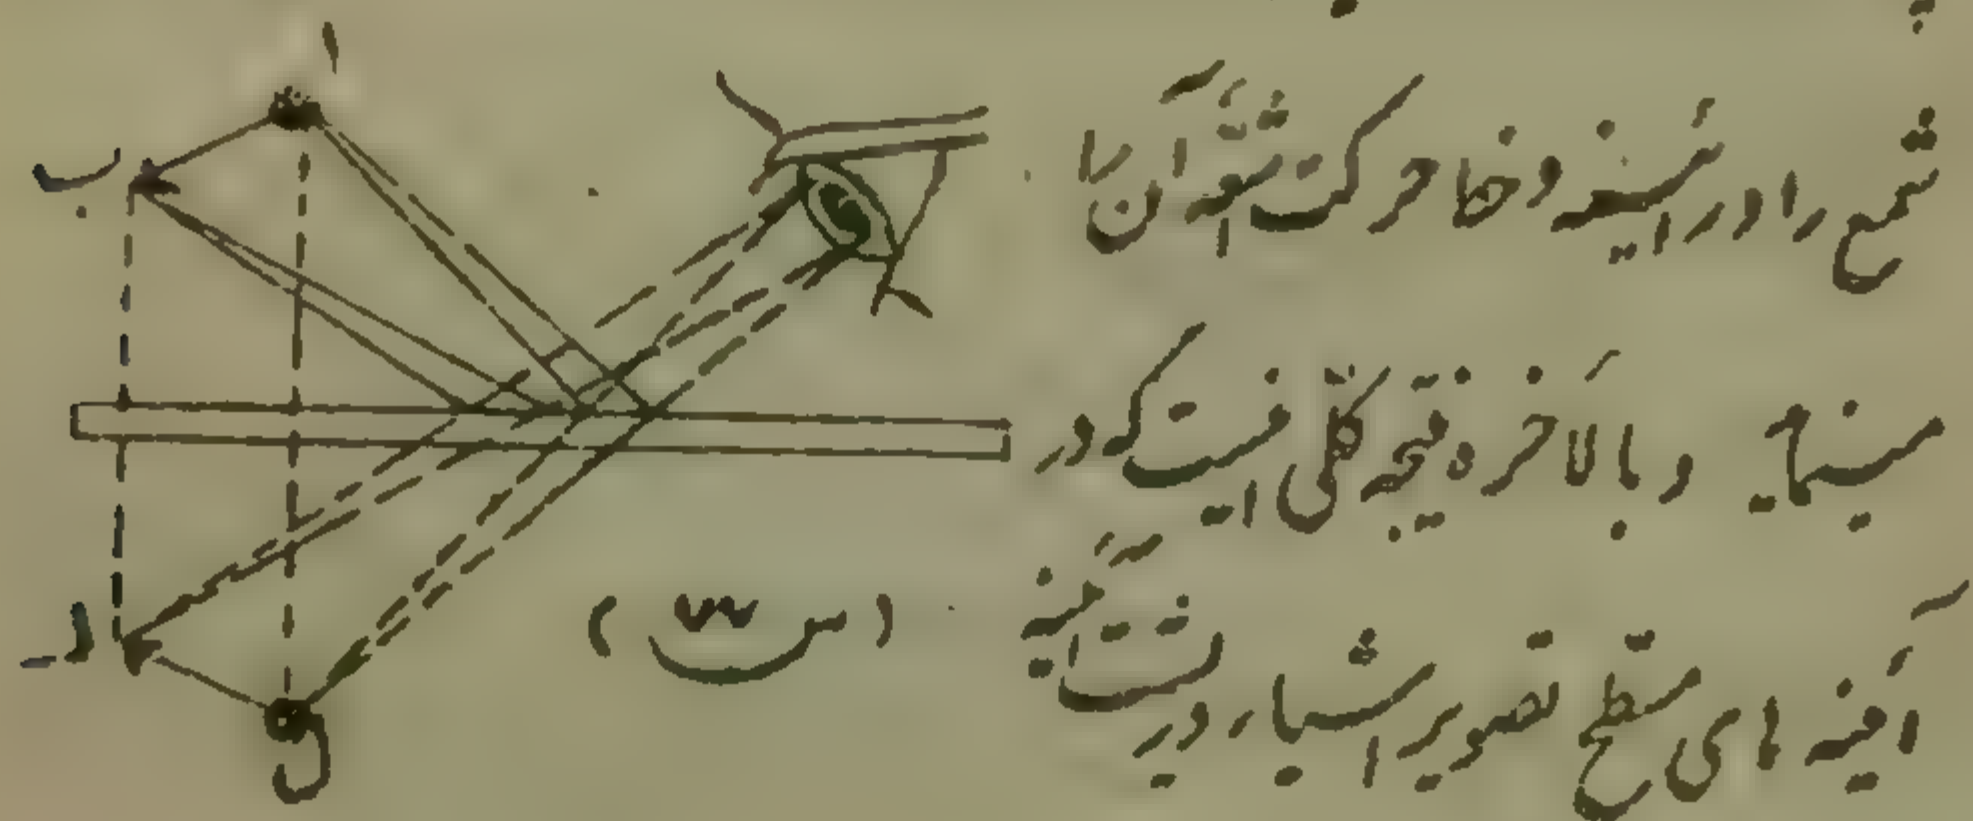 شمع را در آئینه و خط حرکت اشعهٔ آن را
مینماید و بالاخره نتیجه کلی اینست که در
آینه های مسطح تصویر اشیاء در پشت آینه
(س ٣٧)
ا
ب